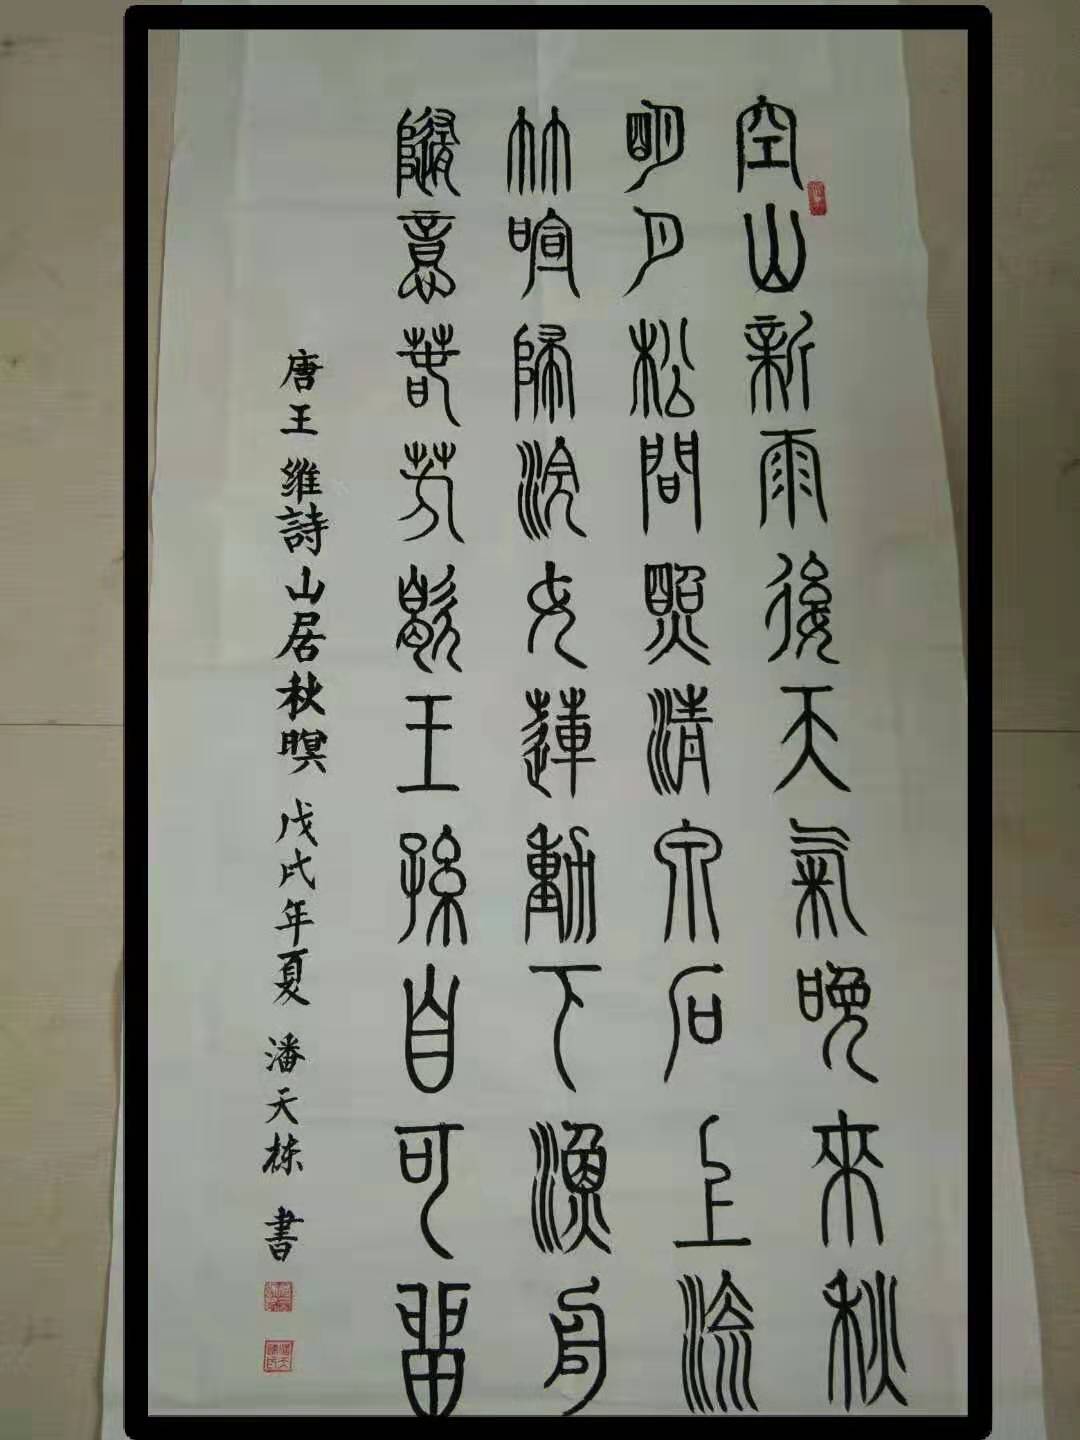 空山新雨後天氣晚來秋
明月松間照清泉石上流
竹喧歸浣女蓮動下漁舟
隨意春芳歇王孫自可留
唐王維詩山居秋暝戊氏年夏潘天栋書